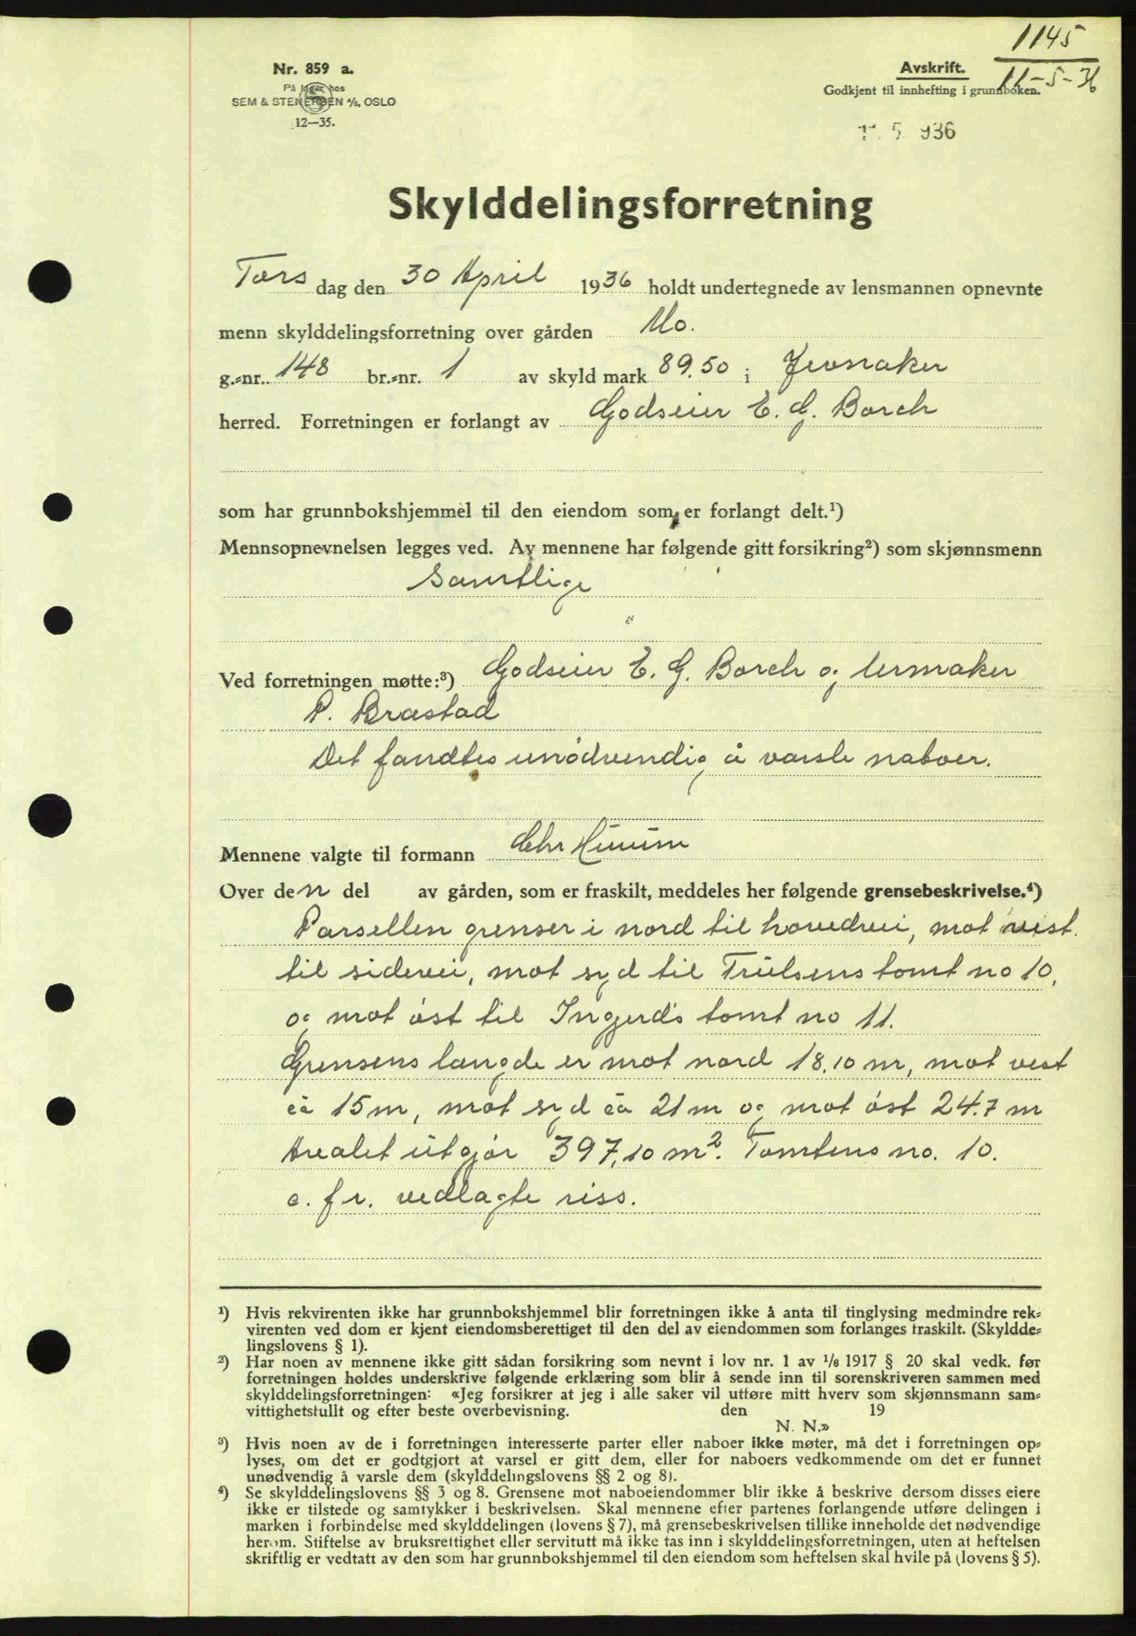 1145
11-5-36
Nr. 859 a.
På lager hos
SEM & STENERSEN A/S, OSLO
12—35.
Avskrift.
Godkjent til innhefting i grunnboken.
11. 5. 936
Skylddelingsforretning
Tors dag den 30 April 1936 holdt undertegnede av lensmannen opnevnte
menn skylddelingsforretning over gården Mo.
g.-nr. 148 br.-nr. 1 av skyld mark 89.50 i Jevnaker
herred. Forretningen er forlangt av Godseier E. G. Borch
som har grunnbokshjemmel til den eiendom som er forlangt delt.¹)
Mennsopnevnelsen legges ved. Av mennene har følgende gitt forsikring²) som skjønnsmenn
Samtlige
Ved forretningen møtte:³) Godseier E. G. Borch og urmaker
P. Brastad
Det fandtes unödvendig å varsle naboer.
Mennene valgte til formann Chr Huuum
Over den del av gården, som er fraskilt, meddeles her følgende grensebeskrivelse.⁴)
Parsellen grenser i nord til hovedvei, mot vest.
til sidevei, mot syd til Trulsens tomt no 10,
og mot öst til Ingerd's tomt no 11.
Grensens længde er mot nord 18.10 m, mot vest
ca 15 m, mot syd ca 21 m og mot öst 24.7 m
Arealet utgjør 397,10 m². Tomtens no. 10.
c. fr. vedlagte riss.
¹) Hvis rekvirenten ikke har grunnbokshjemmel blir forretningen ikke å anta til tinglysing medmindre rek-
virenten ved dom er kjent eiendomsberettiget til den del av eiendommen som forlanges fraskilt. (Skyldde-
lingslovens § 1).
²) Har noen av mennene ikke gitt sådan forsikring som nevnt i lov nr. 1 av 1/6 1917 § 20 skal vedk. før
forretningen holdes underskrive følgende erklæring som blir å sende inn til sorenskriveren sammen med
skylddelingsforretningen: «Jeg forsikrer at jeg i alle saker vil utføre mitt hverv som skjønnsmann sam-
vittighetsfullt og efter beste overbevisning. den 19
N. N.»
³) Hvis noen av de i forretningen interesserte parter eller naboer ikke møter, må det i forretningen op-
lyses, om det er godtgjort at varsel er gitt dem, eller for naboers vedkommende om det er funnet
unødvendig å varsle dem (skylddelingslovens §§ 2 og 8).
⁴) Se skylddelingslovens §§ 3 og 8. Grensene mot naboeiendommer blir ikke å beskrive dersom disses eiere
ikke er tilstede og samtykker i beskrivelsen. Skal mennene efter partenes forlangende utføre delingen i
marken i forbindelse med skylddelingen (lovens § 7), må grensebeskrivelsen tillike inneholde det nødvendige
herom. Stiftelse av bruksrettighet eller servitutt må ikke tas inn i skylddelingsforretningen, uten at heftelsen
skriftlig er vedtatt av den som har grunnbokshjemmel til den eiendom som heftelsen skal hvile på (lovens § 5).